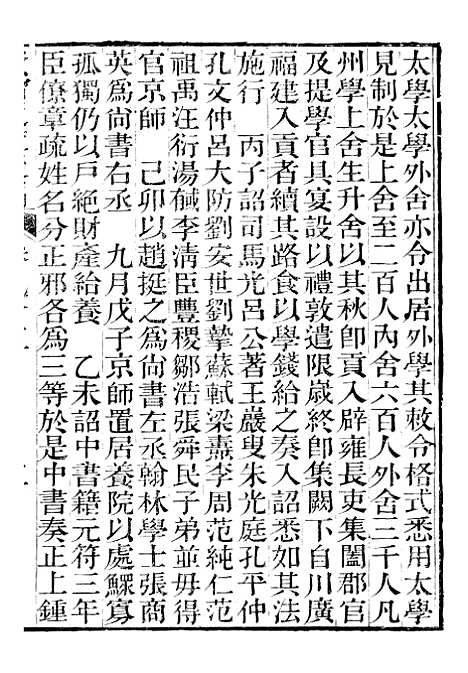 太學太學外舍亦令出居外學其敕令格式悉用太學
見制於是上舍至二百人內舍六百人外舍三千人凡
州學上舍生升舍以其秋卽貢入辟雍長吏集闔郡官
及提學官具宴設以禮敦遣限歲終卽集闕下自川廣
福建入貢者續其路食以學錢給之奏入詔悉如其法
施行　丙子詔司馬光呂公著王巖叟朱光庭孔平仲
孔文仲呂大防劉安世劉摯蘇軾梁燾李周范純仁范
祖禹汪衍湯馘李清臣豐稷鄒浩張舜民子弟並毋得
官京師　己卯以趙挺之爲尚書左丞翰林學士張商
英爲尚書右丞　九月戊子京師置居養院以處鰥寡
孤獨仍以戶絕財產給養　乙未詔中書籍元符三年
臣僚章疏姓名分正邪各爲三等於是中書奏正上鍾